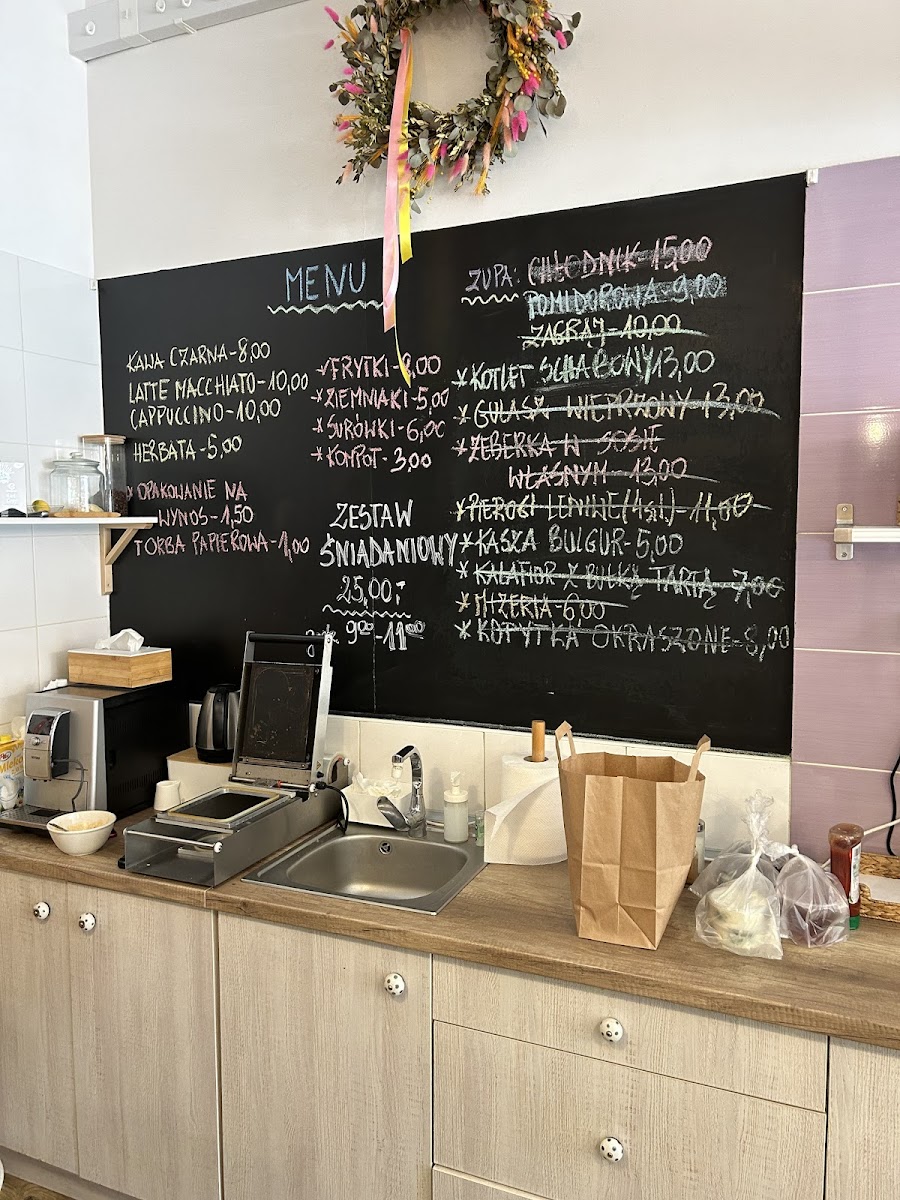 MENU
KAWA CZARNA-8,00
LATTE MACCHIATO-10,00
CAPPUCCINO-10,00
HERBATA-5,00
* OPAKOWANIE NA
WYNOS-1,50
TORBA PAPIEROWA-1,00
*FRYTKI-8,00
*ZIEMNIAKI-5,00
*SURÓWKI-6,00
*KOMPOT-3,00
ZESTAW
ŚNIADANIOWY
25,00,-
9⁰⁰-11⁰⁰
ZUPA: CHŁODNIK 15,00
POMIDOROWA-9,00
ZAGRAJ-10,00
*KOTLET SCHABOWY 13,00
*GULASZ WIEPRZOWY-13,00
*ŻEBERKA W SOSIE
WŁASNYM-13,00
*PIEROGI LENIWE(14szt.)-11,00
*KASZA BULGUR-5,00
*KALAFIOR Z BUŁKĄ TARTĄ-7,00
*MIZERIA-6,00
*KOPYTKA OKRASZONE-8,00